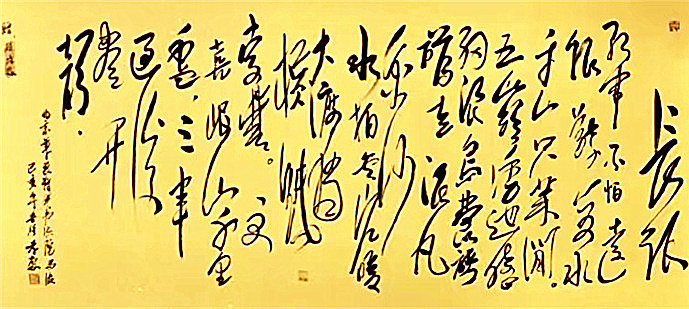 长征
红军不怕远
征难万水
千山只等闲。
五岭逶迤腾
细浪乌蒙磅
礴走泥丸
金沙
水拍云崖暖
大渡桥
横铁
索寒。更
喜岷山千里
雪三军
过后
尽开
颜.
己亥年